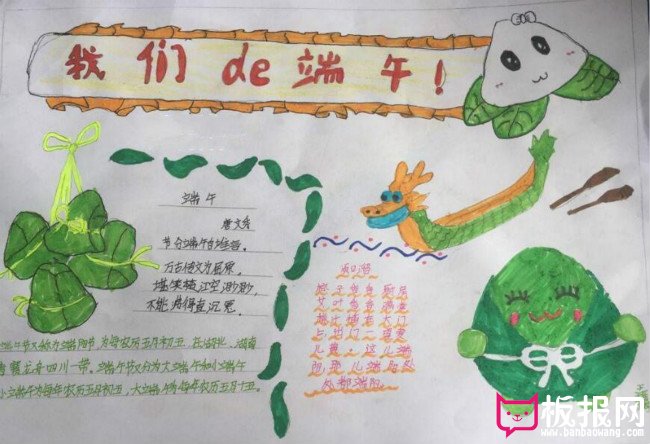 我们de端午！
端午
唐文秀
节分端午自谁言，
万古传文为屈原。
堪笑楚江空渺渺，
不能洗得直臣冤。
端午节又称为端阳节 为每农历五月初五 在湖北、湖南
贵州 四川一带，端午节又分为大端午和小端午
小端午为每年农历五月初五，大端午为每年农历五月十五。
和谐
粽子
艾叶
大门
出门一
儿黄 这儿端
阳 儿端阳处
处都端阳。
板报网
www.banbaowang.com